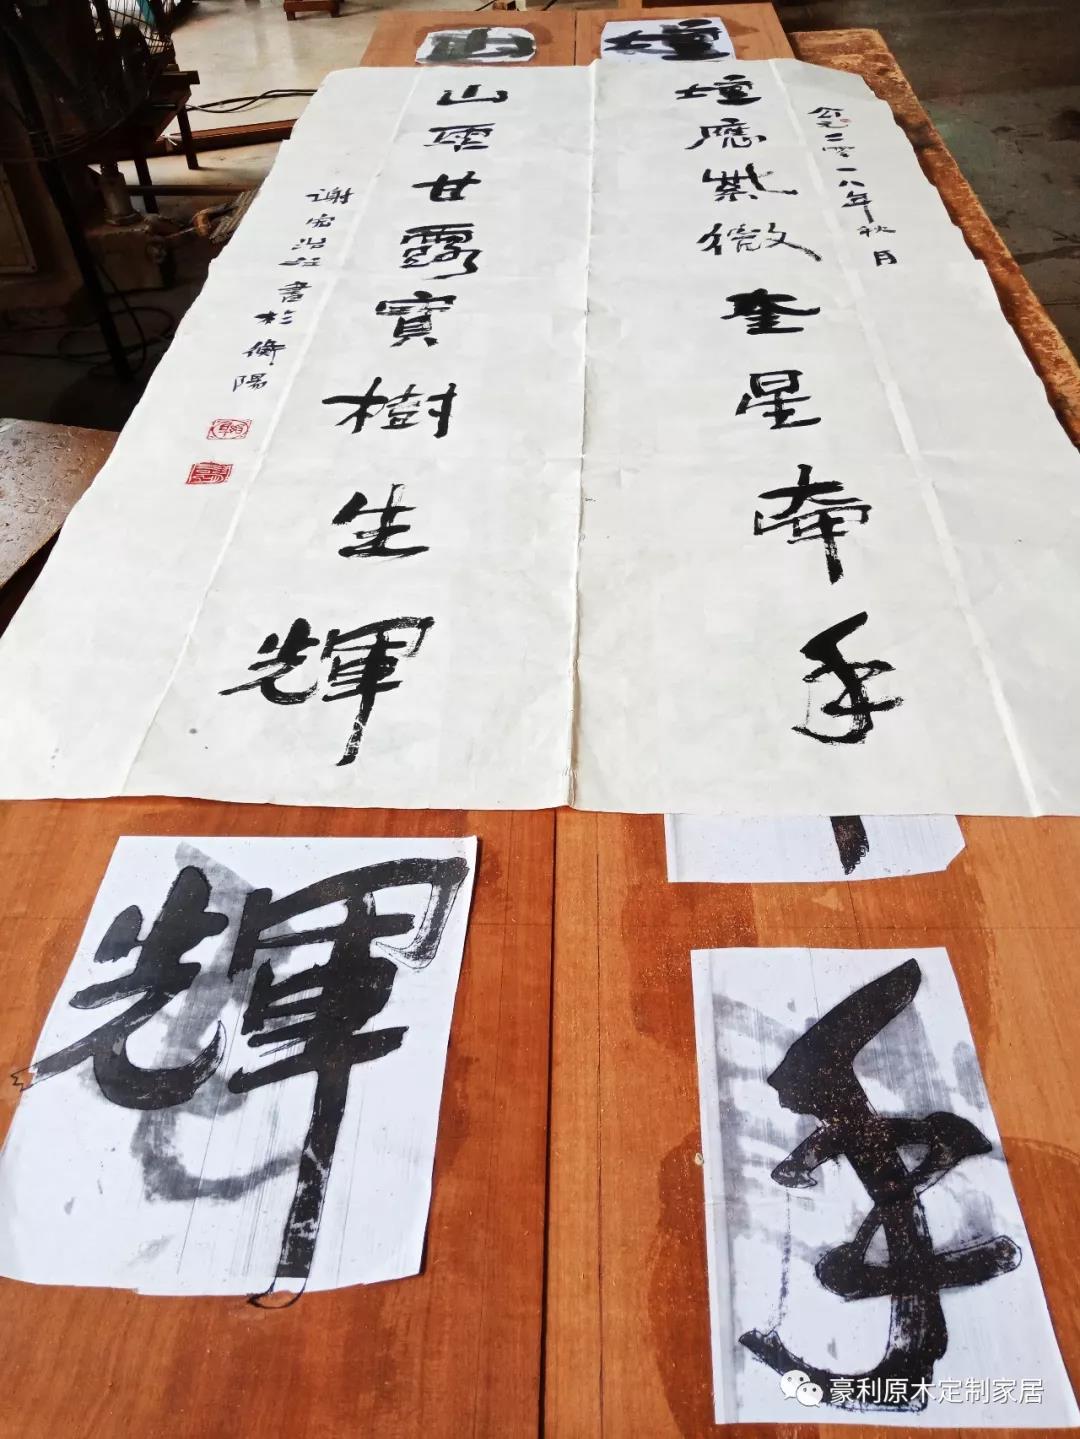 山
壇
公元二零一八年秋月
壇應紫微奎星牽手
山甘露寶樹生輝
谢宏治書於衡陽
輝
手
豪利原木定制家居